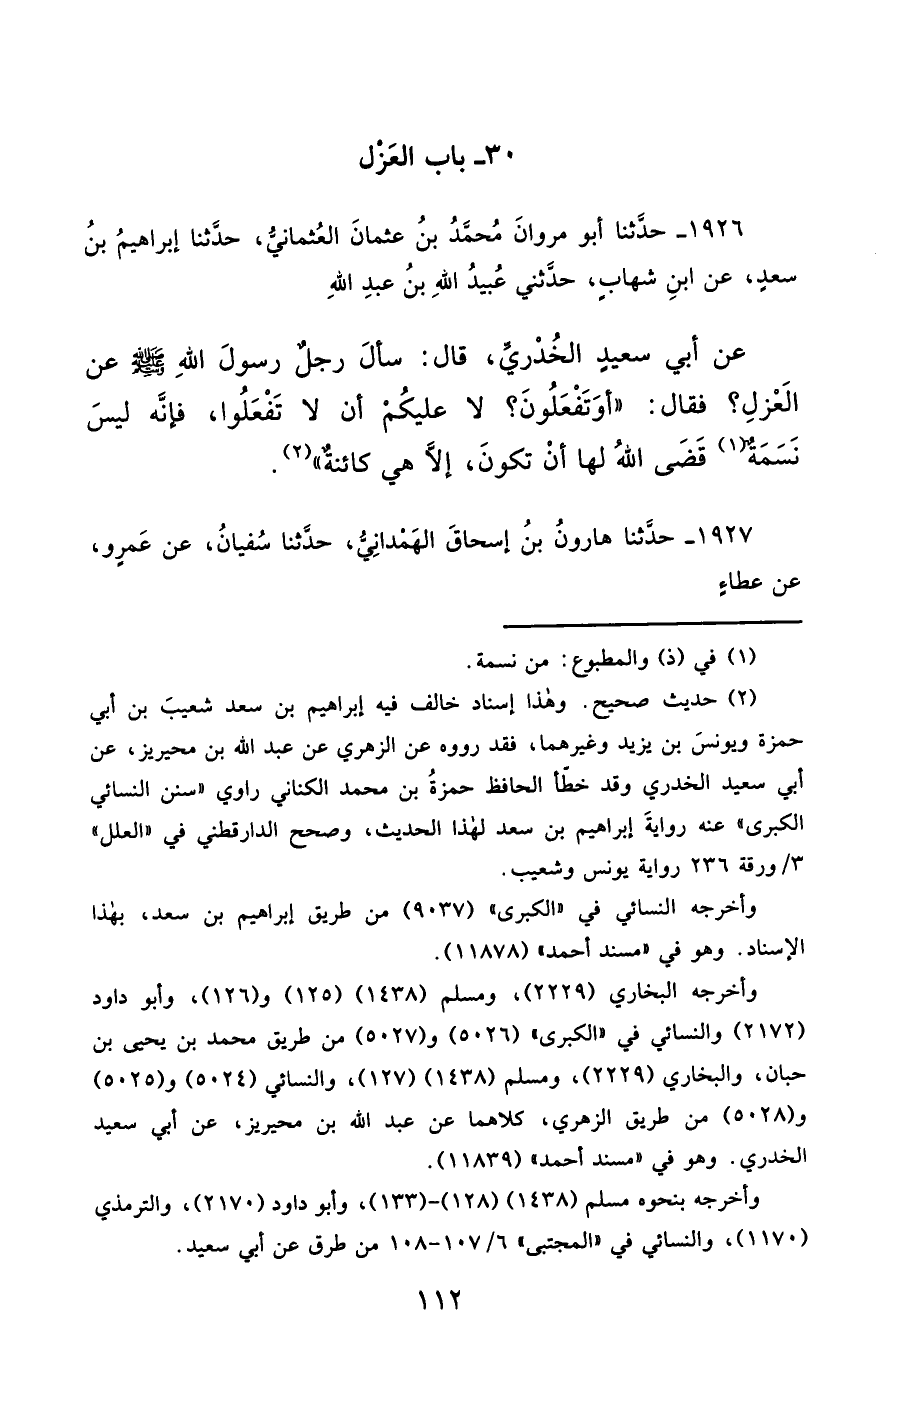 ٣٠ـ باب العَزْل
١٩٢٦ـ حدَّثنا أبو مروانَ مُحمَّدُ بنُ عثمانَ العُثمانيُّ، حدَّثنا إبراهيمُ بنُ
سعدٍ، عن ابنِ شهابٍ، حدَّثني عُبيدُ اللهِ بنُ عبدِ اللهِ
عن أبي سعيدٍ الخُدْريِّ، قال: سألَ رجلٌ رسولَ اللهِ ﷺ عن
العَزلِ؟ فقال: «أوَتَفْعَلُونَ؟ لا عليكُمْ أن لا تَفْعَلُوا، فإنَّه ليسَ
نَسَمَةٌ(١) قَضَى اللهُ لها أنْ تكونَ، إلاَّ هي كائنةٌ»(٢).
١٩٢٧ـ حدَّثنا هارونُ بنُ إسحاقَ الهَمْدانِيُّ، حدَّثنا سُفيانُ، عن عَمرٍو،
عن عطاءٍ
(١) في (ذ) والمطبوع: من نسمة.
(٢) حديث صحيح. وهٰذا إسناد خالف فيه إبراهيم بن سعد شعيبَ بن أبي
حمزة ويونسَ بن يزيد وغيرهما، فقد رووه عن الزهري عن عبد الله بن محيريز، عن
أبي سعيد الخدري وقد خطّأ الحافظ حمزةُ بن محمد الكناني راوي «سنن النسائي
الكبرى» عنه روايةَ إبراهيم بن سعد لهٰذا الحديث، وصحح الدارقطني في «العلل»
٣/ورقة ٢٣٦ رواية يونس وشعيب.
وأخرجه النسائي في «الكبرى» (٩٠٣٧) من طريق إبراهيم بن سعد، بهٰذا
الإسناد. وهو في «مسند أحمد» (١١٨٧٨).
وأخرجه البخاري (٢٢٢٩)، ومسلم (١٤٣٨) (١٢٥) و(١٢٦)، وأبو داود
(٢١٧٢) والنسائي في «الكبرى» (٥٠٢٦) و(٥٠٢٧) من طريق محمد بن يحيى بن
حبان، والبخاري (٢٢٢٩)، ومسلم (١٤٣٨) (١٢٧)، والنسائي (٥٠٢٤) و(٥٠٢٥)
و(٥٠٢٨) من طريق الزهري، كلاهما عن عبد الله بن محيريز، عن أبي سعيد
الخدري. وهو في «مسند أحمد» (١١٨٣٩).
وأخرجه بنحوه مسلم (١٤٣٨) (١٢٨)-(١٣٣)، وأبو داود (٢١٧٠)، والترمذي
(١١٧٠)، والنسائي في «المجتبى» ٦/١٠٧-١٠٨ من طرق عن أبي سعيد.
١١٢